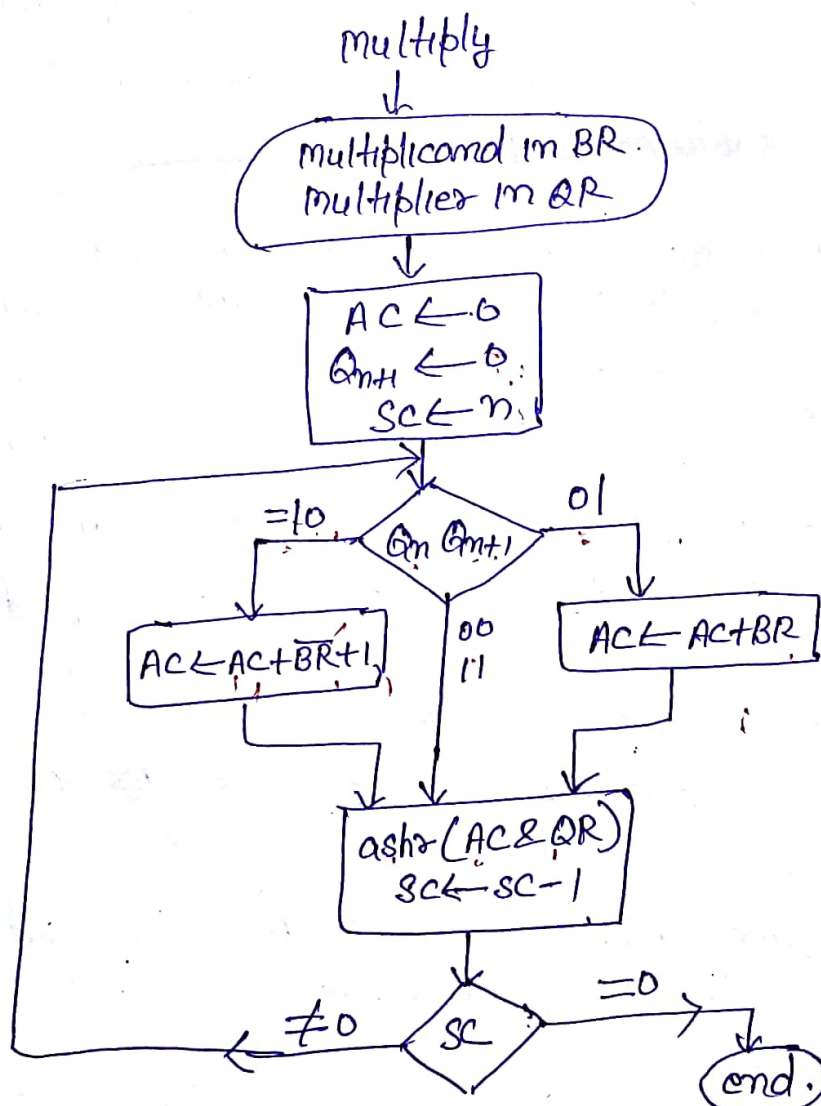 Multiply
Multiplicand in BR.
Multiplier in QR
AC ← 0
Qn+1 ← 0
SC ← n
=10
Qn Qn+1
01
00
11
AC ← AC + B̅R̅ + 1
AC ← AC + BR
ashr (AC & QR)
SC ← SC - 1
≠0
SC
=0
end.